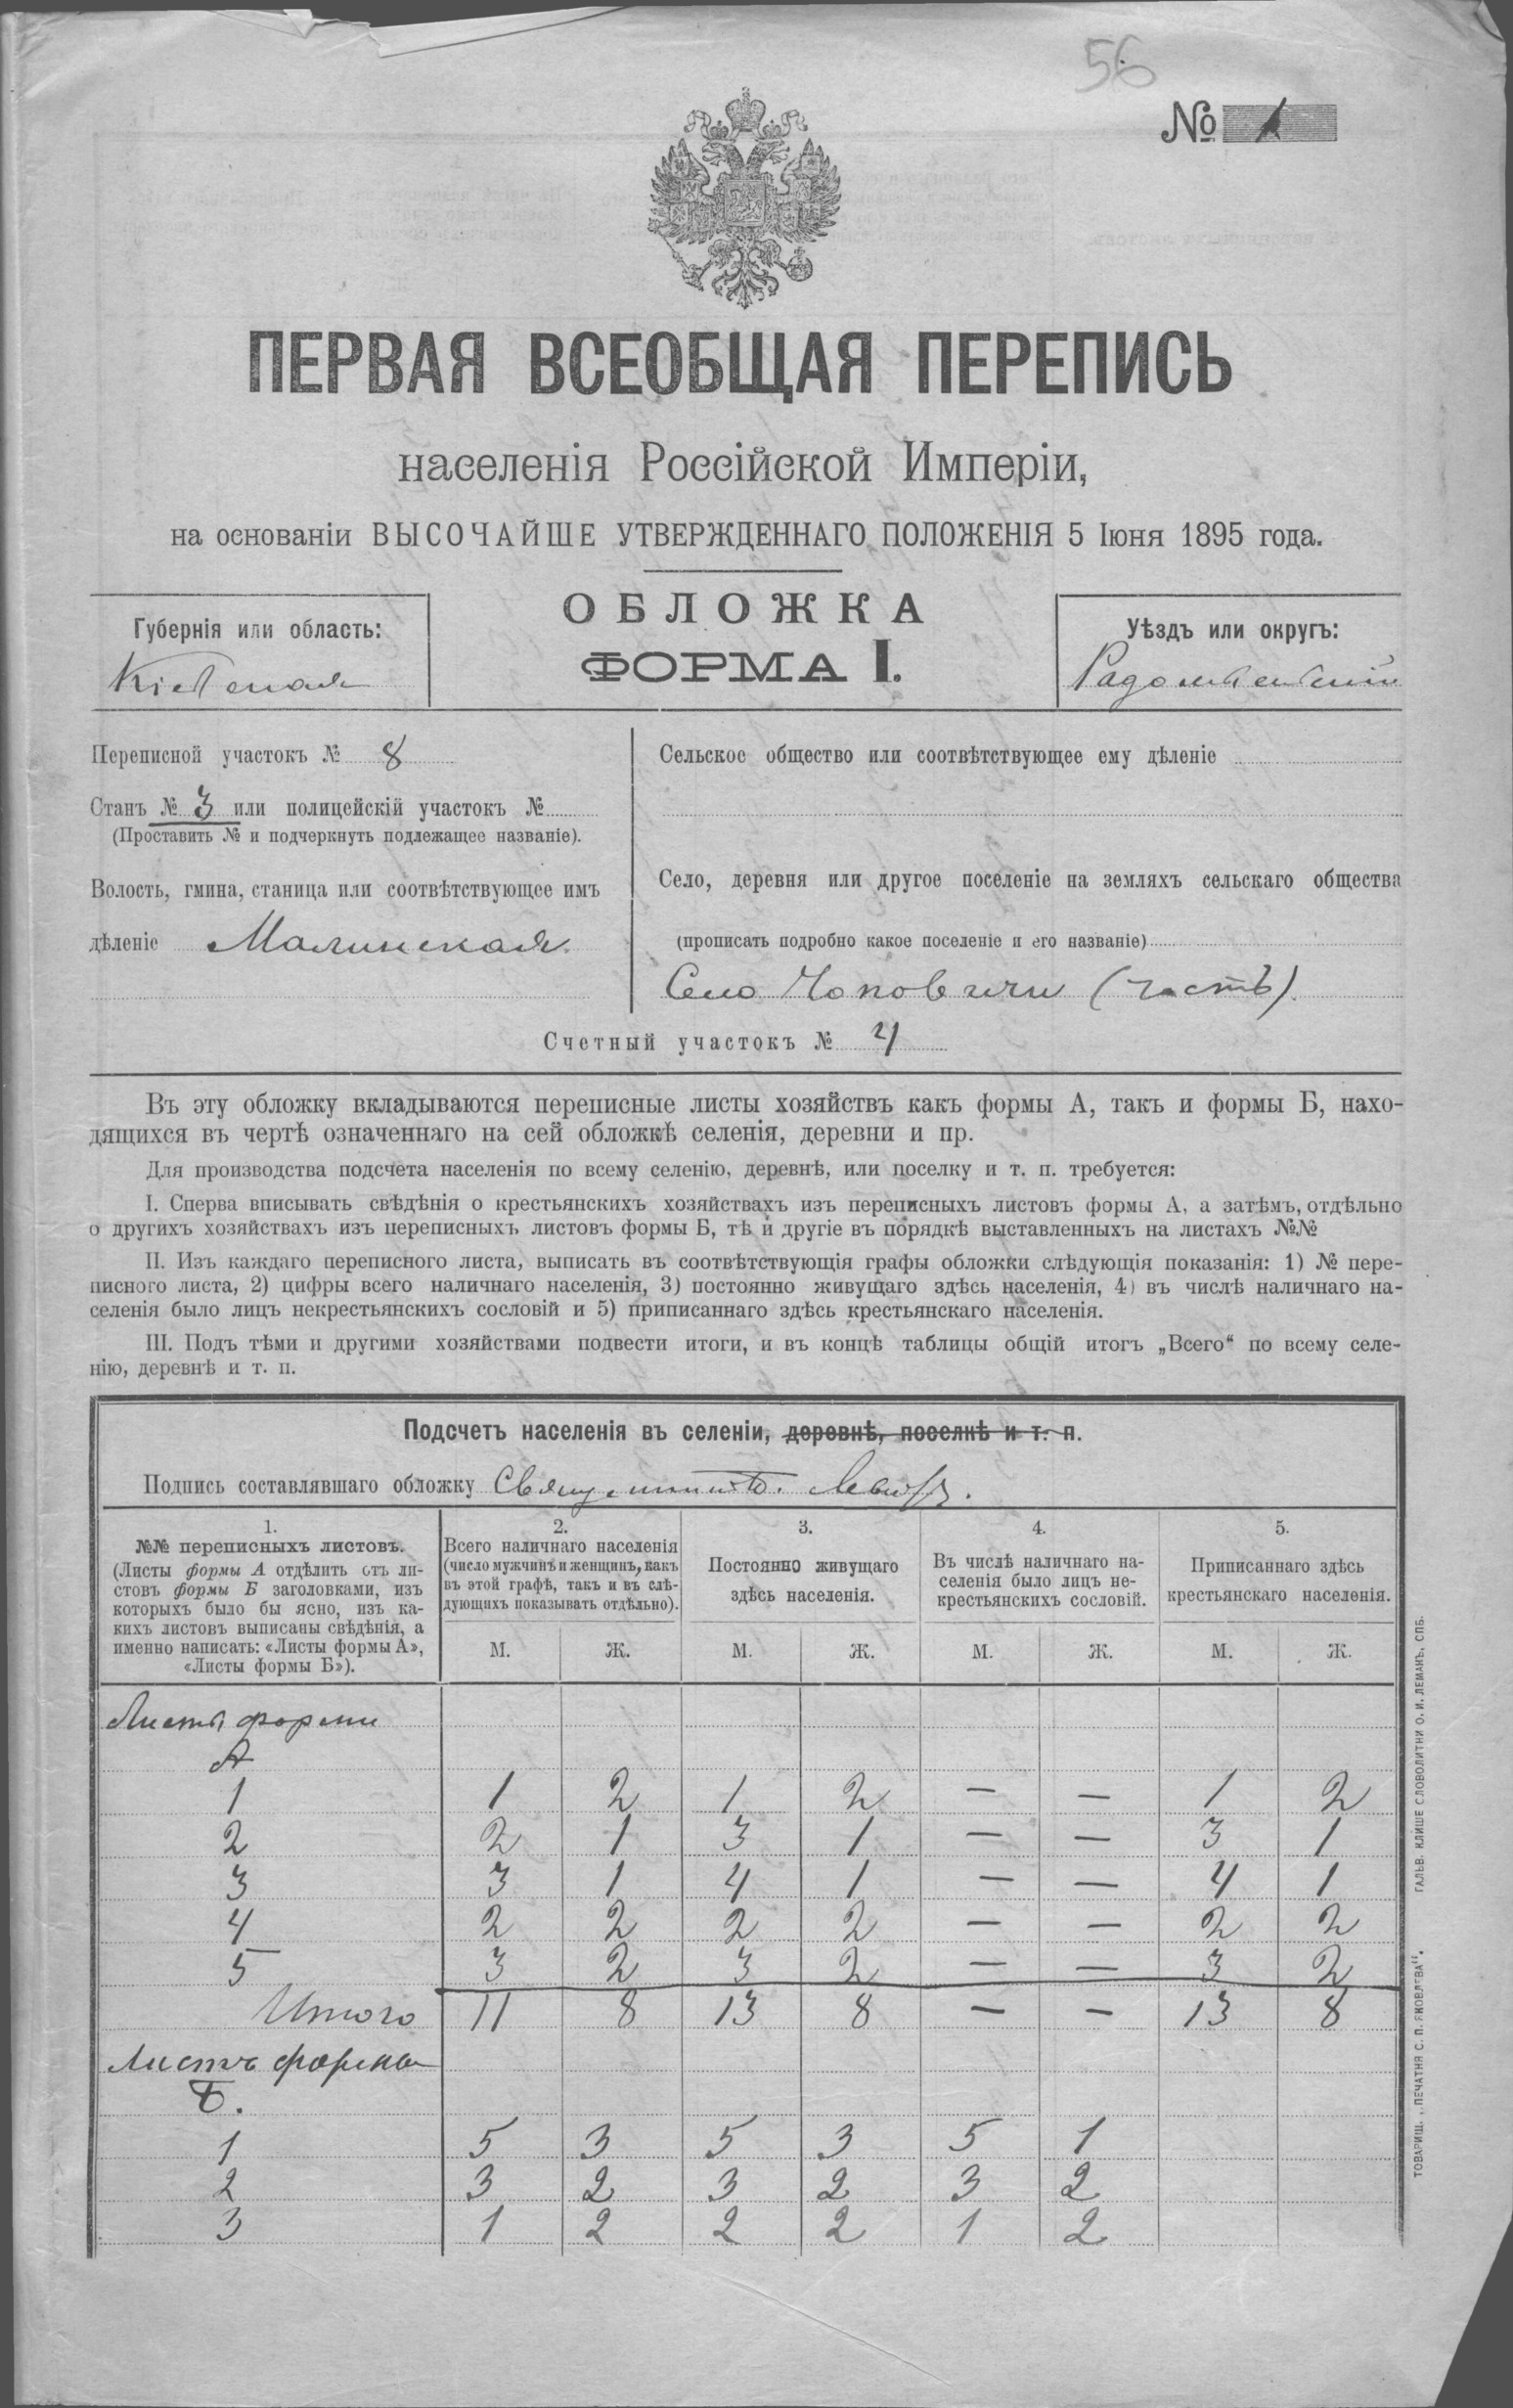 56
№ 1
ПЕРВАЯ ВСЕОБЩАЯ ПЕРЕПИСЬ
населенія Россійской Имперіи,
на основаніи ВЫСОЧАЙШЕ УТВЕРЖДЕННАГО ПОЛОЖЕНІЯ 5 Іюня 1895 года.
ОБЛОЖКА
ФОРМА I.
Губернія или область:
Кіевская
Уѣздъ или округъ:
Радомысльскій
Переписной участокъ № 8
Станъ № 3 или полицейскій участокъ №
(Проставить № и подчеркнуть подлежащее названіе).
Волость, гмина, станица или соотвѣтствующее имъ
дѣленіе Малинская
Сельское общество или соотвѣтствующее ему дѣленіе
Село, деревня или другое поселеніе на земляхъ сельскаго общества
(прописать подробно какое поселеніе и его названіе)
Село Чоповичи (часть).
Счетный участокъ № 4
Въ эту обложку вкладываются переписные листы хозяйствъ какъ формы А, такъ и формы Б, нахо-
дящихся въ чертѣ означеннаго на сей обложкѣ селенія, деревни и пр.
Для производства подсчета населенія по всему селенію, деревнѣ, или поселку и т. п. требуется:
I. Сперва вписывать свѣдѣнія о крестьянскихъ хозяйствахъ изъ переписныхъ листовъ формы А, а затѣмъ, отдѣльно
о другихъ хозяйствахъ изъ переписныхъ листовъ формы Б, тѣ и другіе въ порядкѣ выставленныхъ на листахъ №№
II. Изъ каждаго переписного листа, выписать въ соотвѣтствующія графы обложки слѣдующія показанія: 1) № пере-
писного листа, 2) цифры всего наличнаго населенія, 3) постоянно живущаго здѣсь населенія, 4) въ числѣ наличнаго на-
селенія было лицъ некрестьянскихъ сословій и 5) приписаннаго здѣсь крестьянскаго населенія.
III. Подъ тѣми и другими хозяйствами подвести итоги, и въ концѣ таблицы общій итогъ „Всего“ по всему селе-
нію, деревнѣ и т. п.
Подсчетъ населенія въ селеніи, деревнѣ, поселкѣ и т. п.
Подпись составлявшаго обложку
1.
№№ переписныхъ листовъ.
(Листы формы А отдѣлить отъ ли-
стовъ формы Б заголовками, изъ
которыхъ было бы ясно, изъ ка-
кихъ листовъ выписаны свѣдѣнія, а
именно написать: «Листы формы А»,
«Листы формы Б»).
2.
Всего наличнаго населенія
(число мужчинъ и женщинъ, какъ
въ этой графѣ, такъ и въ слѣ-
дующихъ показывать отдѣльно).
3.
Постоянно живущаго
здѣсь населенія.
4.
Въ числѣ наличнаго на-
селенія было лицъ не-
крестьянскихъ сословій.
5.
Приписаннаго здѣсь
крестьянскаго населенія.
М. Ж. М. Ж. М. Ж. М. Ж.
Листы формы
А
1 1 2 1 2 — — 1 2
2 2 1 3 1 — — 3 1
3 3 1 4 1 — — 4 1
4 2 2 2 2 — — 2 2
5 3 2 3 2 — — 3 2
Итого 11 8 13 8 — — 13 8
Листъ формы
Б.
1 5 3 5 3 5 1
2 3 2 3 2 3 2
3 1 2 2 2 1 2
ГАЛЬВ. КЛИШЕ СЛОВОЛИТНИ О. И. ЛЕМАНЪ, СПБ.
ТОВАРИЩ. „ПЕЧАТНЯ С. П. ЯКОВЛЕВА“.